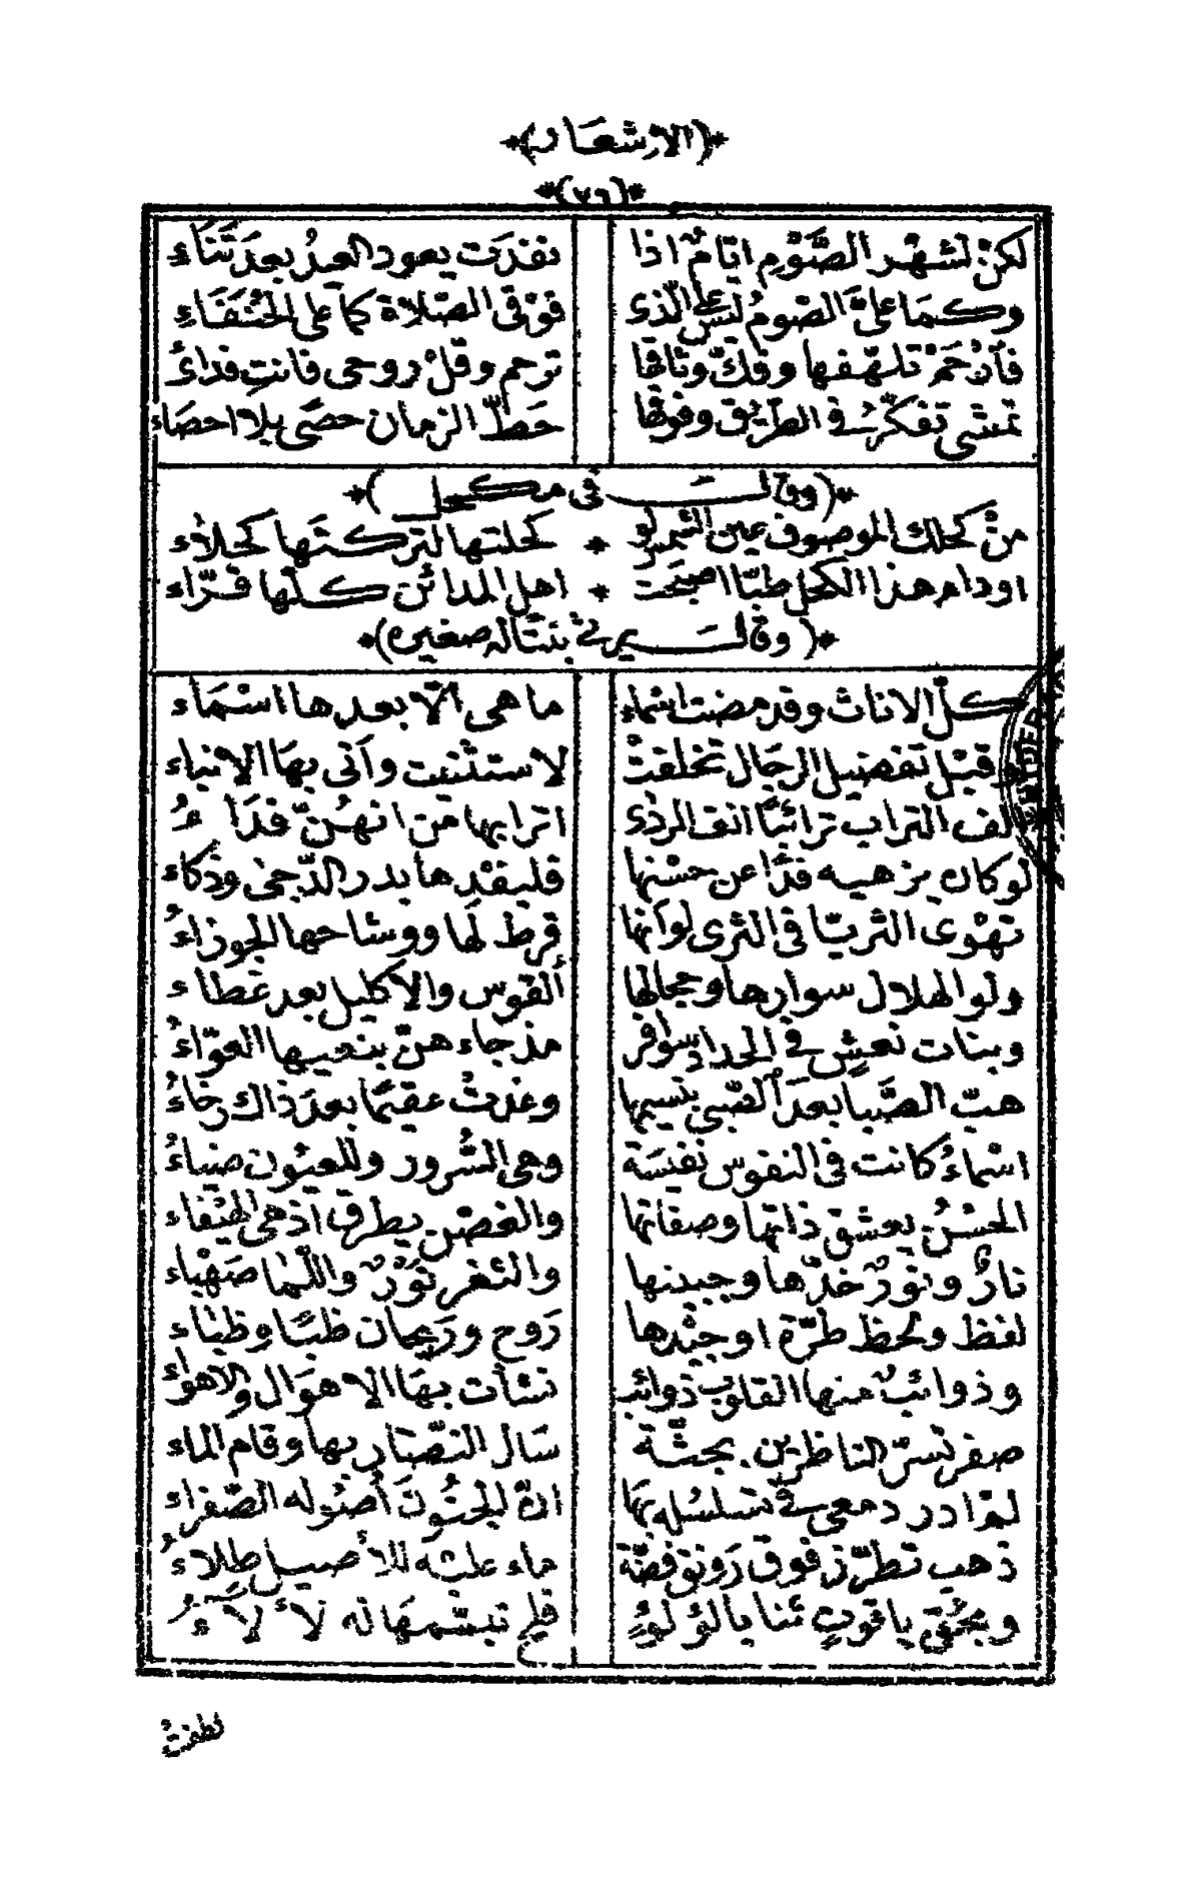 ﴿الاشعار﴾
﴿٧٦﴾
لكنْ لشهْر الصَّوْمِ ايّامٌ اذا نفدَت يعود العدُ بعدَ تَنَاءِ
وكما علىَّ الصّومُ ليس على الّذى فوْقى الصّلاة كما على الخُنْفَسَاءِ
فأرْحَمْ تلهّفها وفكّ وثاقها ترحم وقلْ روحى فانتِ فداءُ
تمشى تفكّرُ فى الطّريق وفوقها حَطّ الزمان حصًى بلا احصَاء
﴿وقالــَـت فى مكحل﴾
منْ كحلك الموصوف عين الشّمس لو * كحلتها لتركتَها كحْلاء
اودام هذا الكحل طبّا اصبَحت * اهل المدائن كلّها قرّاء
﴿وقالــَـ يرثى بنتاله صغيره﴾
كلّ الاناث وقد مضت اسْماء ما هى الّا بعدها اسْمَاء
قبْل تفضيل الرجَال تخلفتْ لاستثنيت وأتى بهَا الانباء
الف التراب ترائبًا انف الردى اترابها من انهُنّ فدَاءُ
لو كان يزهيه فدًا عن حسْنها فليفْدها بدر الدّجى وذكاء
تهْوى الثريّا فى الثرى لو انها قرط لَها ووشاحها الجوزاءُ
ولو الهلال سوارها وحجالها ألقوس والاكليل بعد غطاء
وبنات نعشٍ فى الحداد سوافر مذ جاء هنّ بنعيها العوّاءُ
هبّ الصَّبا بعدَ الصّبى بنسيمها وغدتْ عقيمًا بعدَ ذاك رخاءُ
اسْماءُ كانت فى النفوس نفيسَة وهى السُّرور وللعيُون ضياءُ
الحسْنُ يعشق ذاتها وصفاتها والغصْن يطرق اذ هى الهيْفاء
نارٌ ونورٌ خدّها وجبينها والثغر نَوْرٌ واللّما صَهْباء
لفظ ولحظ طرّة اوجيْدها رَوح ورَيحان ظبًا وظباء
وذوائبٌ منها القلوب ذوائب نشأت بهَا الاهوَال والاهواء
صفر تسرّ الناظرين بجثّة سَال النّضار بها وقام الماء
لم ادر دمعى فى تسلسله بها انّ لجُنُونَ أُصُوله الصّفراء
ذهب تطرّز فوق رَونق فضّة ماء عليْه للأصيل طِلاءُ
وبحُقّ ياقوبٍ ثنا يالؤلؤٍ فلم تبسّمهَا له لأْلاءُ
لطفتْ